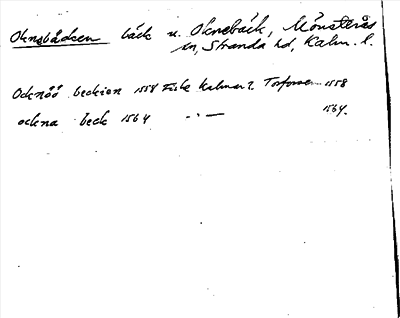 Oknebäcken bäck u. Oknebäck, Mönsterås
sn, Stranda hd, Kalm. l.
Ocknöö beckien 1558 Kalmar 1558
ockna beck 1564 - " - 1564.